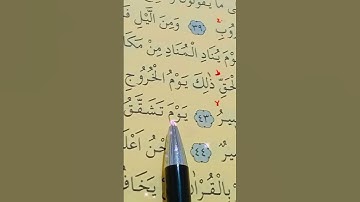 ى مَا يَقُولُونَ وَ
رُوبِ ٣٩ وَمِنَ ٱلَّيْلِ فَ
وْمَ يُنَادِ ٱلْمُنَادِ مِن مَّكَا
لْحَقِّ ذَٰلِكَ يَوْمُ ٱلْخُرُوجِ
صِيرُ ٤٣ يَوْمَ تَشَقَّقُ
سِيرٌ ٤٤ نَّحْنُ أَعْلَ
بِٱلْقُرْءَا يَخَافُ